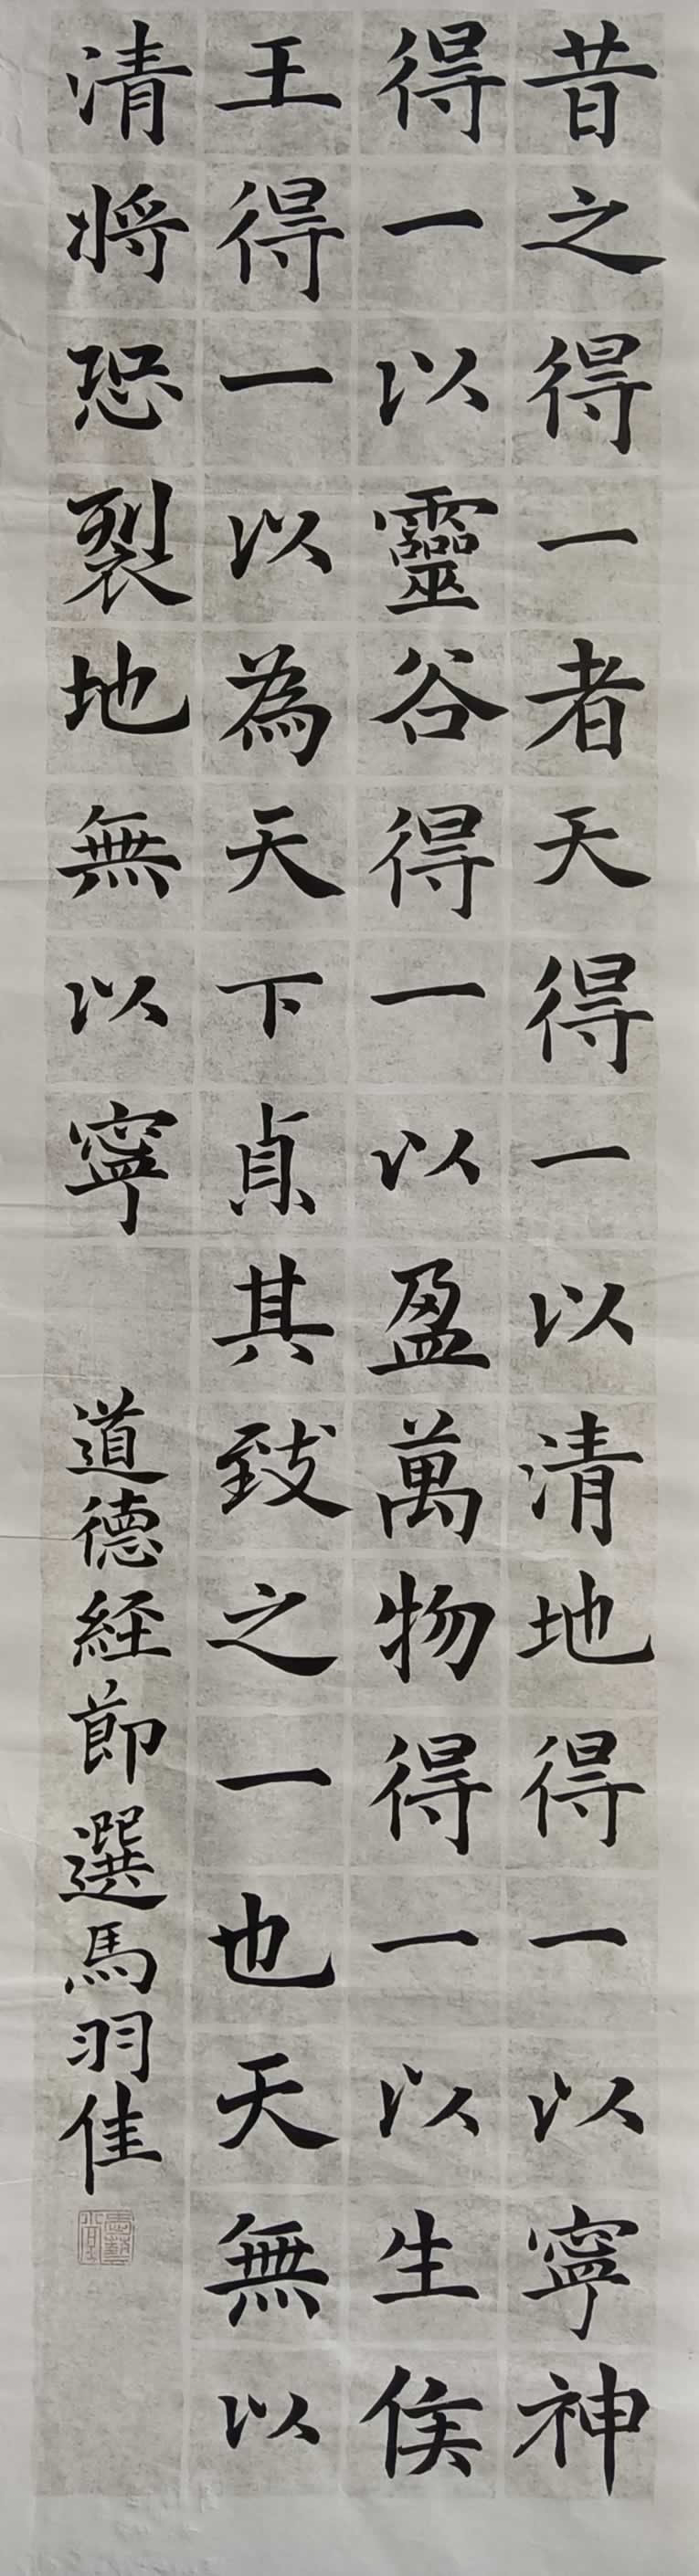 昔之得一者天得一以清地得一以寧神
得一以靈谷得一以盈萬物得一以生侯
王得一以為天下貞其致之一也天無以
清將恐裂地無以寧
道德経節選馬羽佳